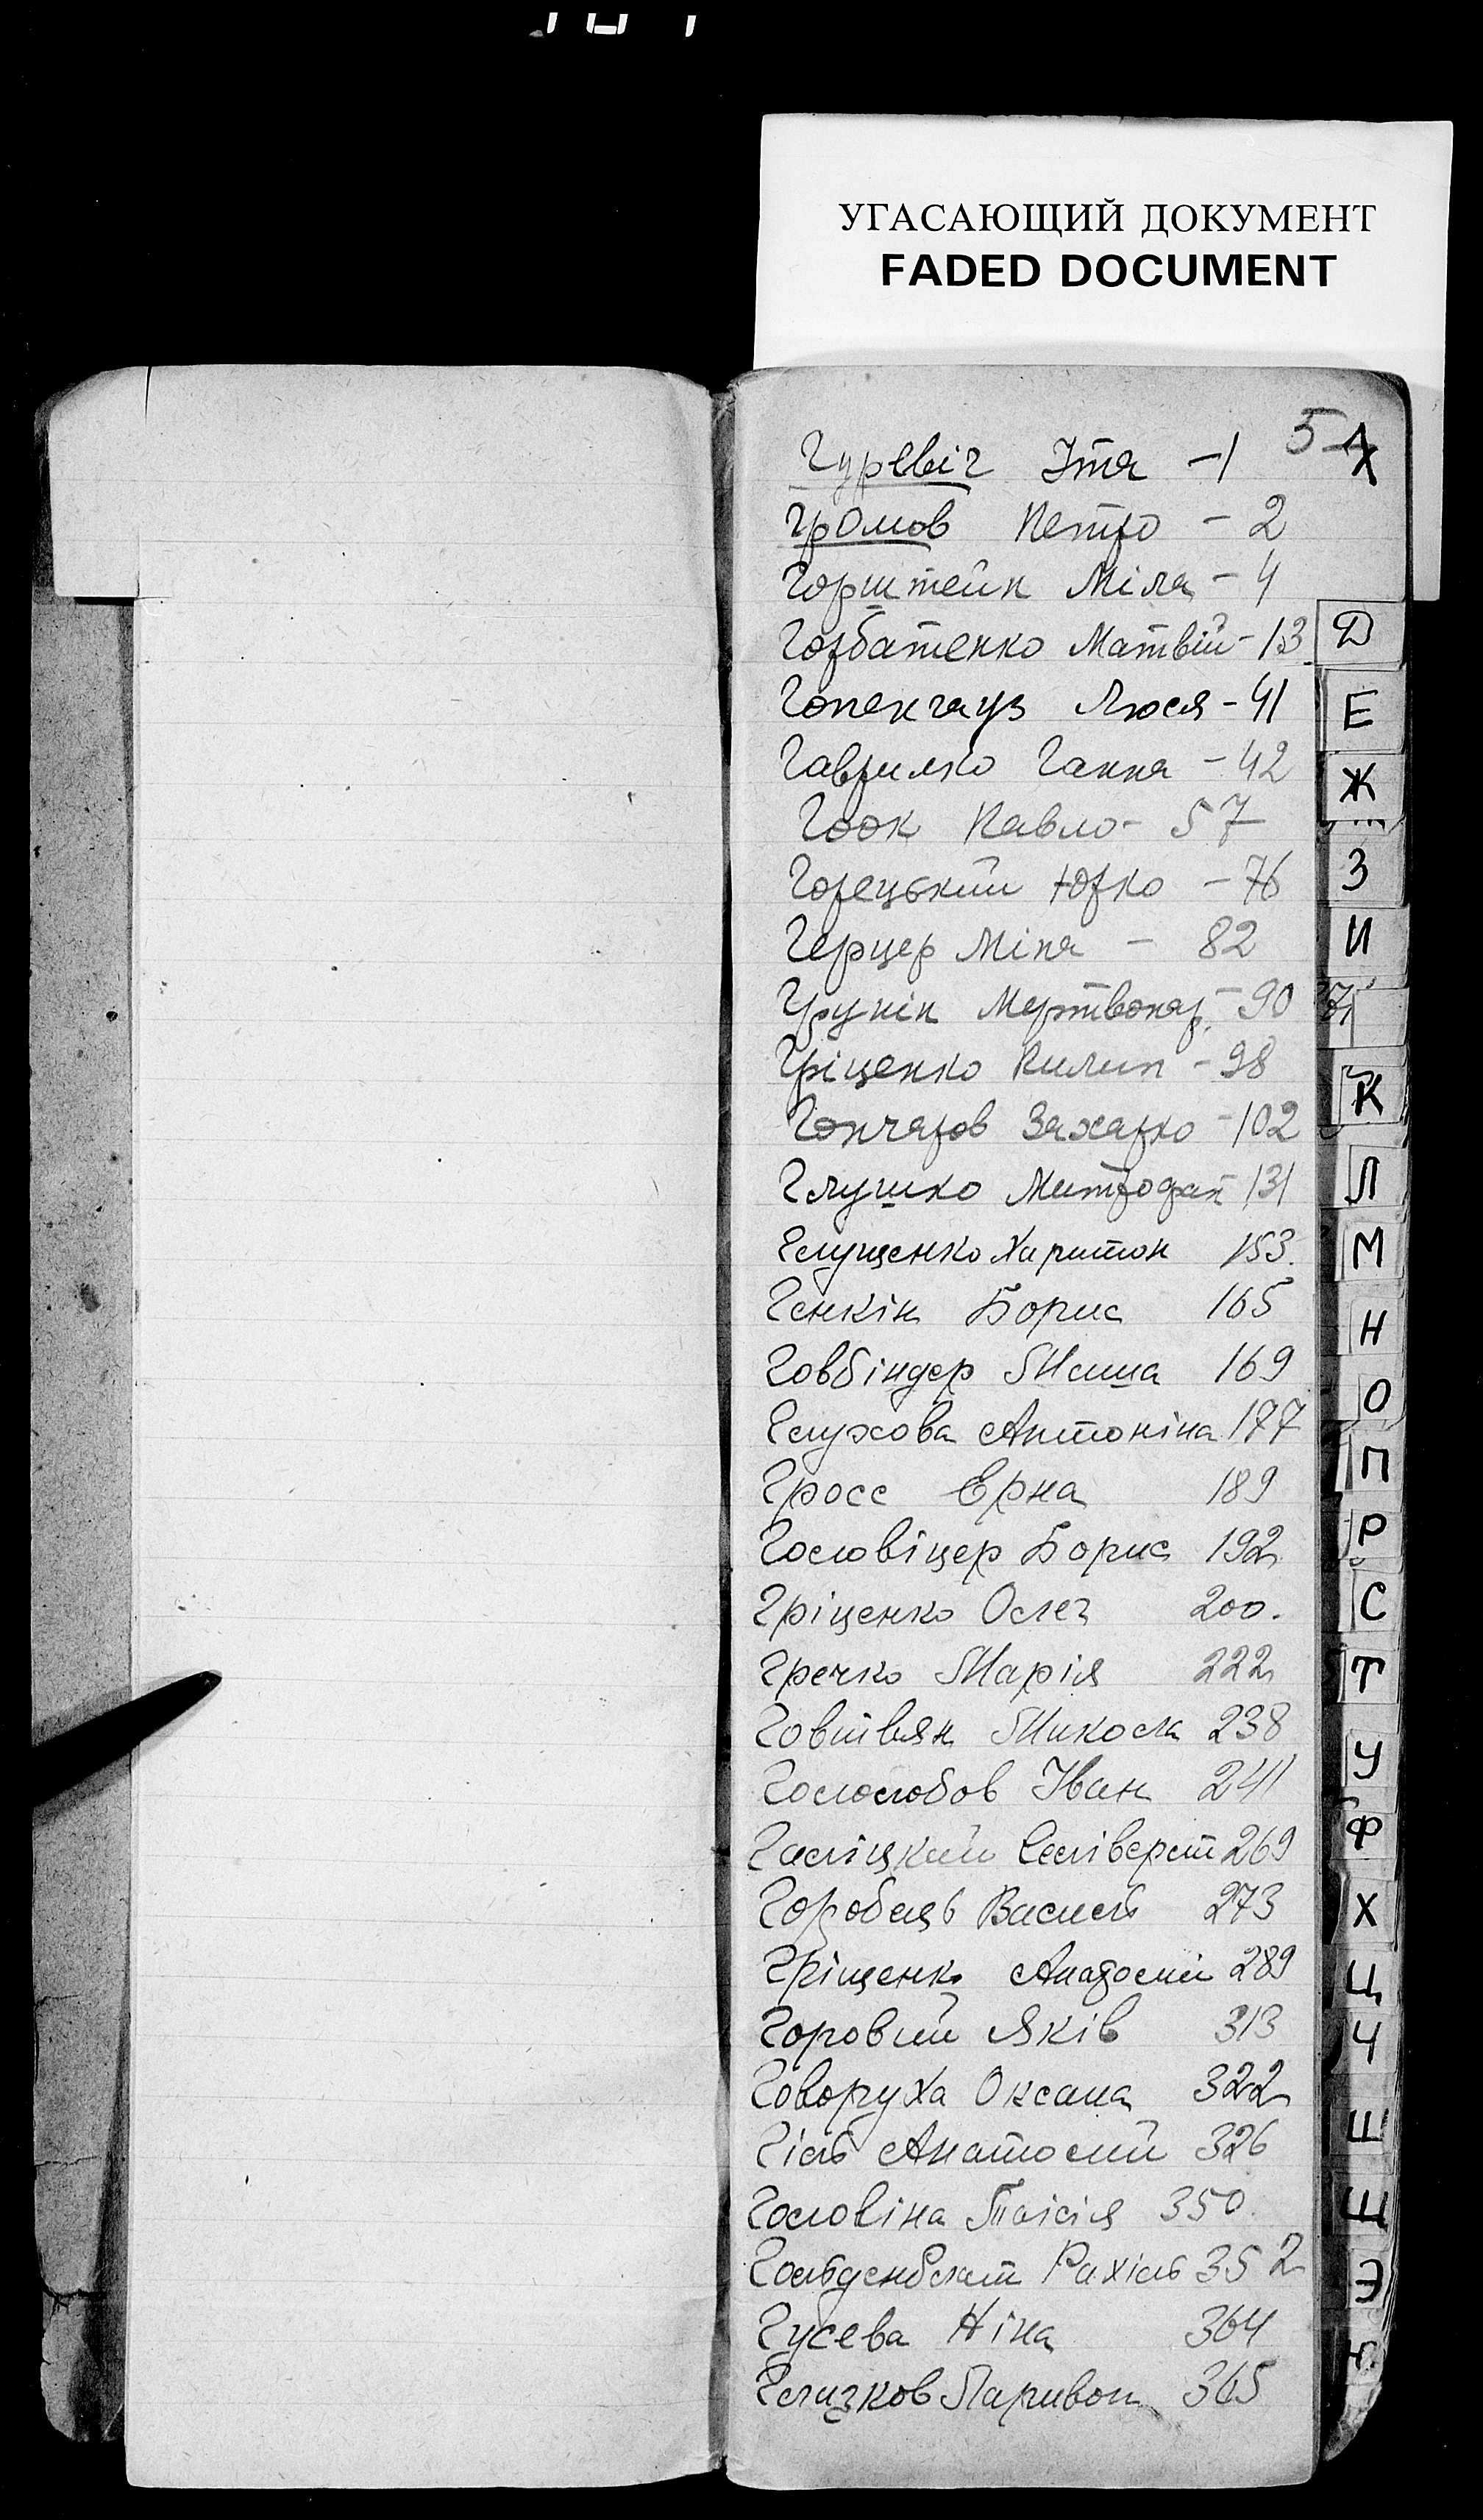 УГАСАЮЩИЙ ДОКУМЕНТ
FADED DOCUMENT
5
Гуревіч Ітя - 1
Громов Петро - 2
Горштейн Міля - 4
Горбатенко Матвій - 13
Гопенгауз Люся - 41
Гаврилко Ганна - 42
Гоок Павло - 57
Горецький Юрко - 76
Герцер Міня - 82
Грунін Мертвонар. - 90
Гріценко Пилип - 98
Гончаров Захарко - 102
Глушко Митрофан 131
Глущенко Харитон 153.
Генкін Борис 165
Говбіндер Миша 169
Глухова Антоніна 177
Гросс Ерна 189
Головіцер Борис 192
Гріценко Олег 200.
Гречко Марія 222
Говтвян Микола 238
Гололобов Іван 241
Галіцкий Селіверст 269
Горобець Василь 273
Гріщенко Анатолій 289
Горовий Яків 313
Говоруха Оксана 322
Гіль Анатолий 326
Головіна Таісія 350.
Гольденблат Рахіль 352
Гусева Ніна 364
Глизков Ларивон 365
Д
Е
Ж
З
И
К
Л
М
Н
О
П
Р
С
Т
У
Ф
Х
Ц
Ч
Ш
Щ
Э